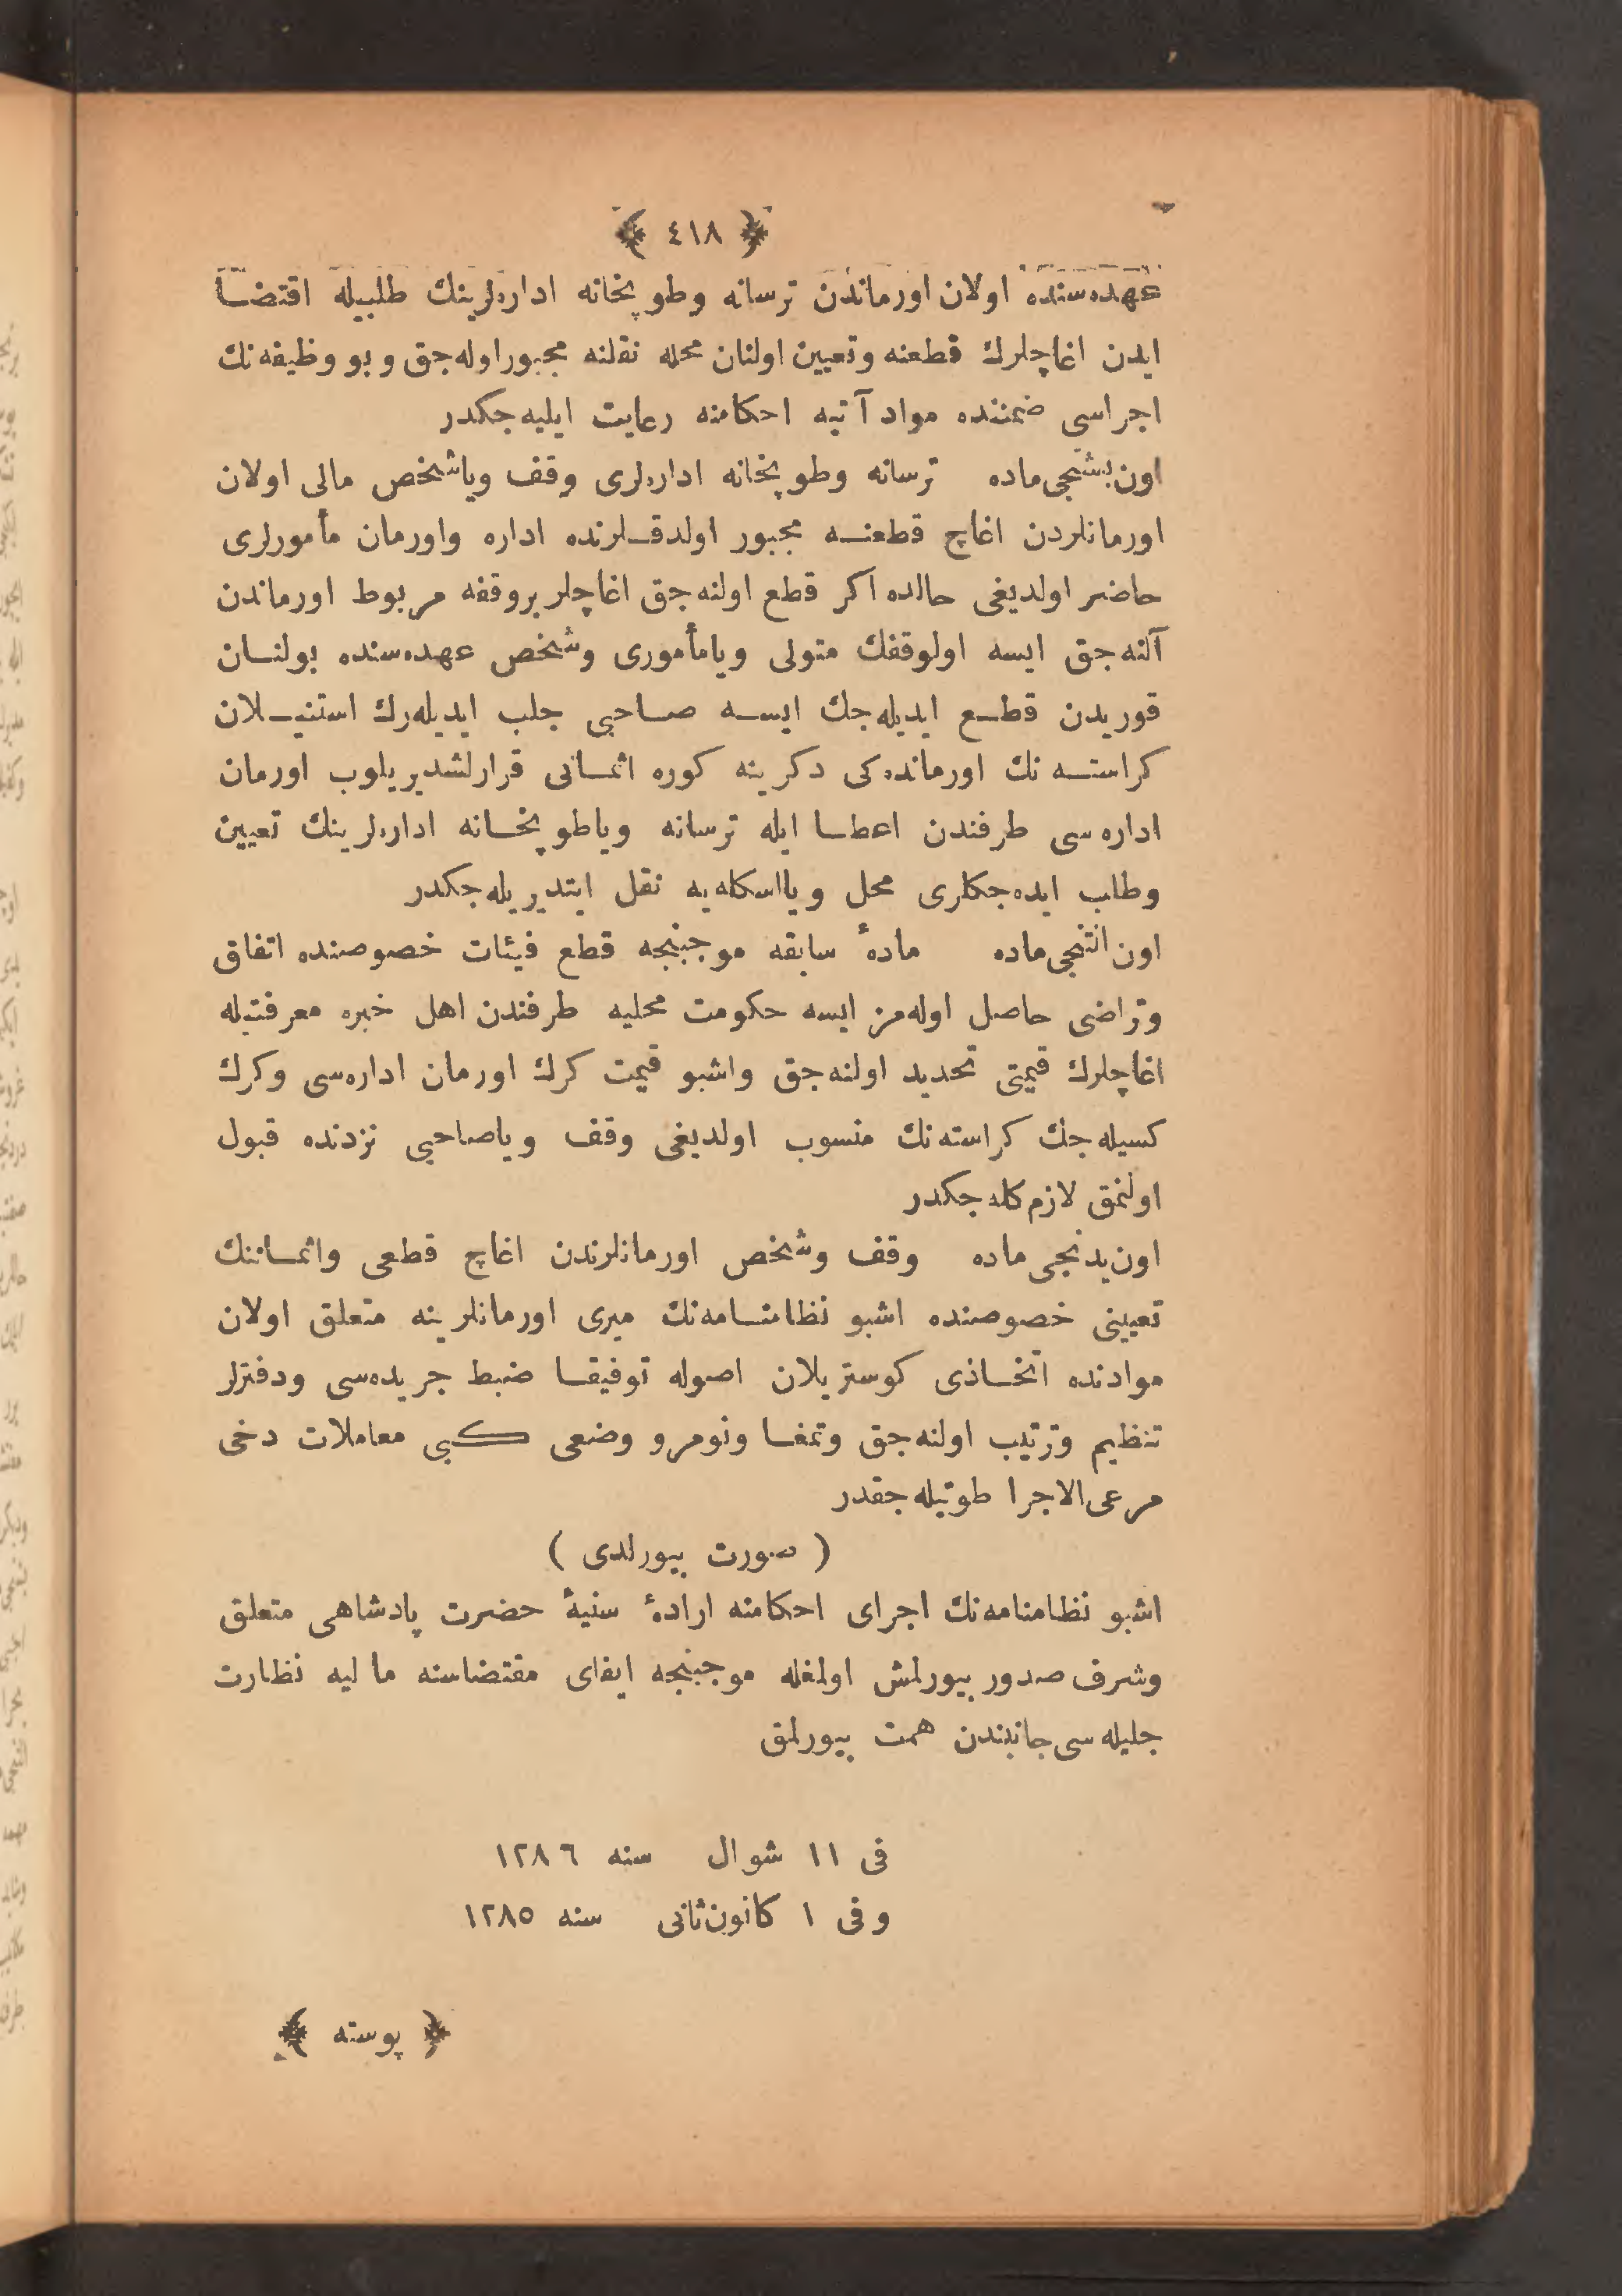 ﴿ ٤١٨ ﴾
عهده‌سنده اولان اورماندن ترسانه وطوپخانه اداره‌لرینك طلبیله اقتضا
ایدن اغاچلرك قطعنه وتعیین اولنان محله نقلنه مجبور اوله‌جق وبو وظیفه‌نك
اجراسی ضمننده مواد آتیه احكامنه رعایت ایلیه‌جكدر
اون بشنجی ماده ترسانه وطوپخانه اداره‌لری وقف ویا شخص مالی اولان
اورمانلردن اغاچ قطعنه مجبور اولدقلرنده اداره واورمان مأمورلری
حاضر اولدیغی حالده اكر قطع اولنه‌جق اغاچلر بروقفه مربوط اورماندن
آلنه‌جق ایسه اولوقفك متولی ویا مأموری وشخص عهده‌سنده بولنان
قوریدن قطع ایدیله‌جك ایسه صاحبی جلب ایدیله‌رك استنیلان
كراسته‌نك اورمانده‌كی دكرینه كوره اثمانی قرارلشدیریلوب اورمان
اداره‌سی طرفندن اعطا ایله ترسانه ویا طوپخانه اداره‌لرینك تعیین
وطلب ایده‌جكلری محل ویا اسكله‌یه نقل ایتدیریله‌جكدر
اون التنجی ماده مادهٔ سابقه موجبنجه قطع فیئات خصوصنده اتفاق
وتراضی حاصل اوله‌مز ایسه حكومت محلیه طرفندن اهل خبره معرفتیله
اغاچلرك قیمتی تحدید اولنه‌جق واشبو قیمت كرك اورمان اداره‌سی وكرك
كسیله‌جك كراسته‌نك منسوب اولدیغی وقف ویا صاحبی نزدنده قبول
اولنمق لازم كله‌جكدر
اون یدنجی ماده وقف وشخص اورمانلرندن اغاچ قطعی واثماننك
تعیینی خصوصنده اشبو نظامنامه‌نك میری اورمانلرینه متعلق اولان
موادنده اتخاذی كوستریلان اصوله توفیقا ضبط جریده‌سی ودفترلر
تنظیم وترتیب اولنه‌جق وتمغا ونومرو وضعی كبی معاملات دخی
مرعی‌الاجرا طوتیله‌جقدر
( صورت بیورلدی )
اشبو نظامنامه‌نك اجرای احكامنه ارادهٔ سنیهٔ حضرت پادشاهی متعلق
وشرف صدور بیورلمش اولمغله موجبنجه ایفای مقتضاسنه مالیه نظارت
جلیله‌سی جانبندن همت بیورلمق
فی ١١ شوال سنه ١٢٨٦
وفی ١ كانون ثانی سنه ١٢٨٥
﴿ پوسته ﴾